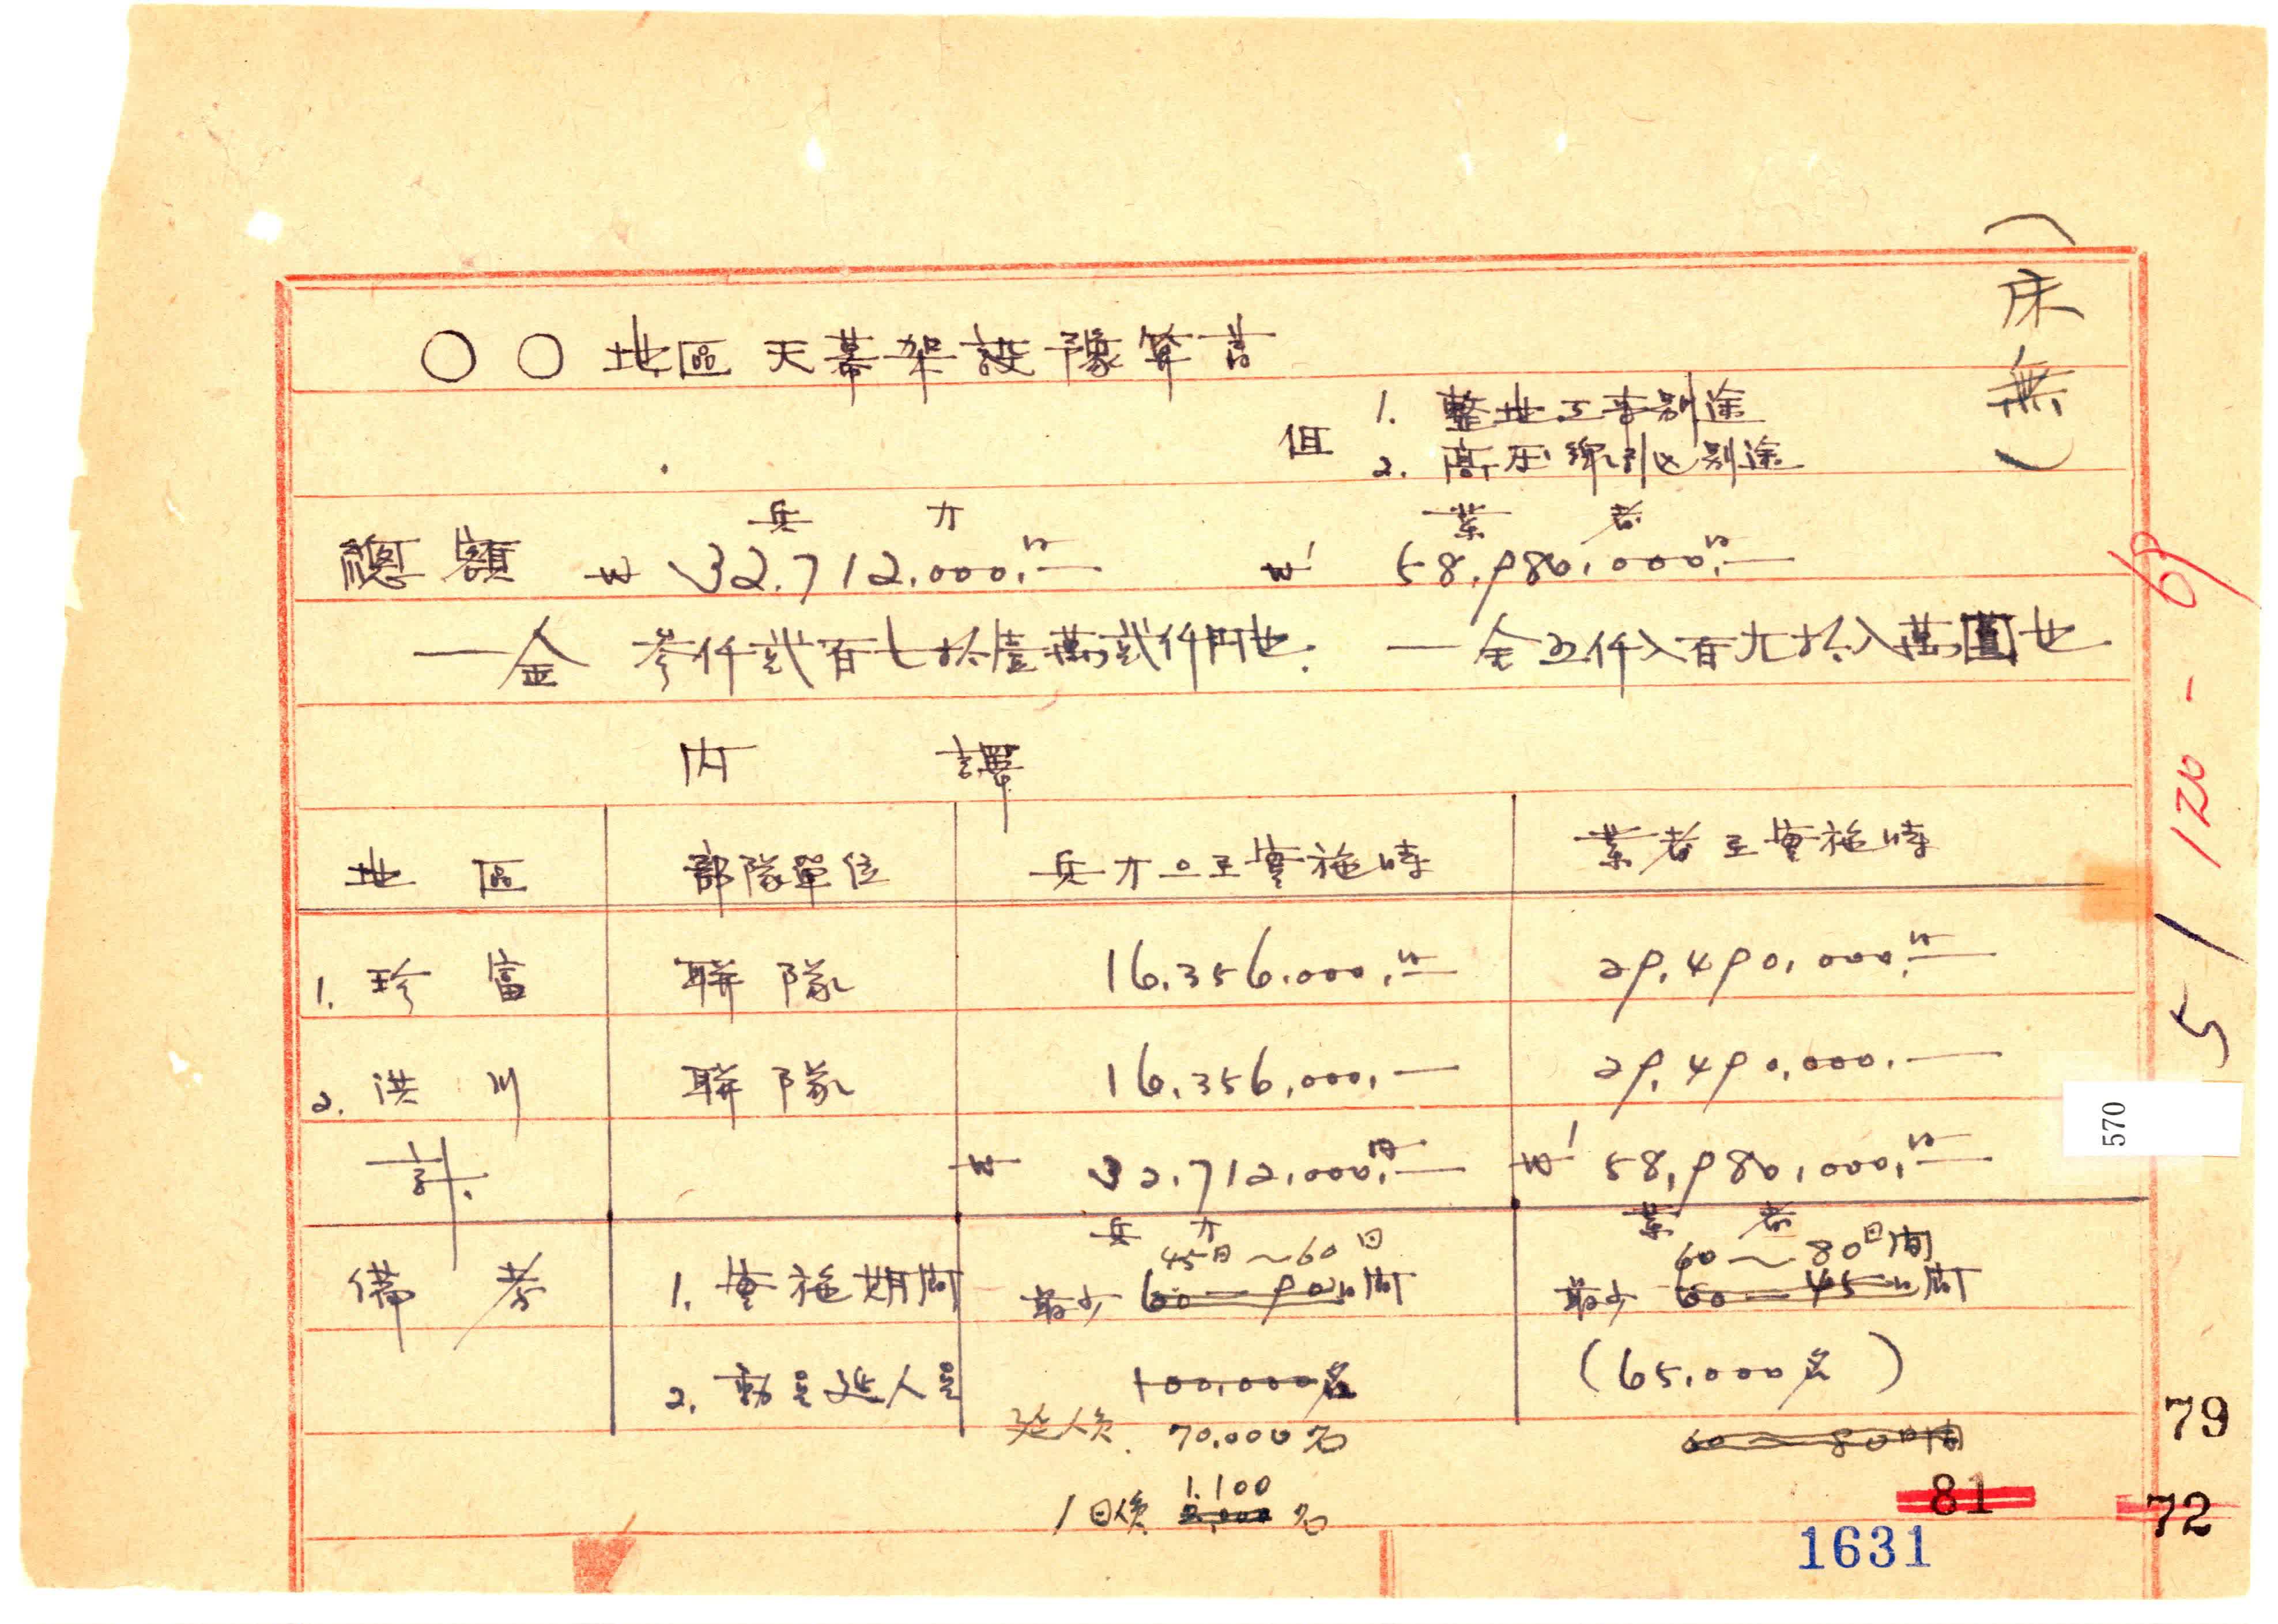 （床無）
〇〇地區天幕架設豫算書
但 1. 整地工事別途
2. 高圧線引込別途
兵力 業者
總額 ₩ 32.712.000.円― ₩ 58,980,000.円―
一金 参仟貳百七拾壹萬貳仟円也. 一金五仟八百九拾八萬圓也
內譯
地區 部隊單位 兵力으로實施時 業者로實施時
1. 珍富 聯隊 16.356.000.円― 29.490,000.円―
2. 洪川 聯隊 16.356,000.― 29.490,000.―
計. ₩ 32.712.000.円― ₩ 58,980,000.円―
兵力 業者
45日～60日 60～80日間
備考 1. 實施期間 最少 60―90日間 最少 60―45日間
2. 動員延人員 100,000名 (65,000名)
延人員. 70,000名 60～80日間
1.100
1日人員 2,000名
69
120-
1
5
570
79
81
72
1631